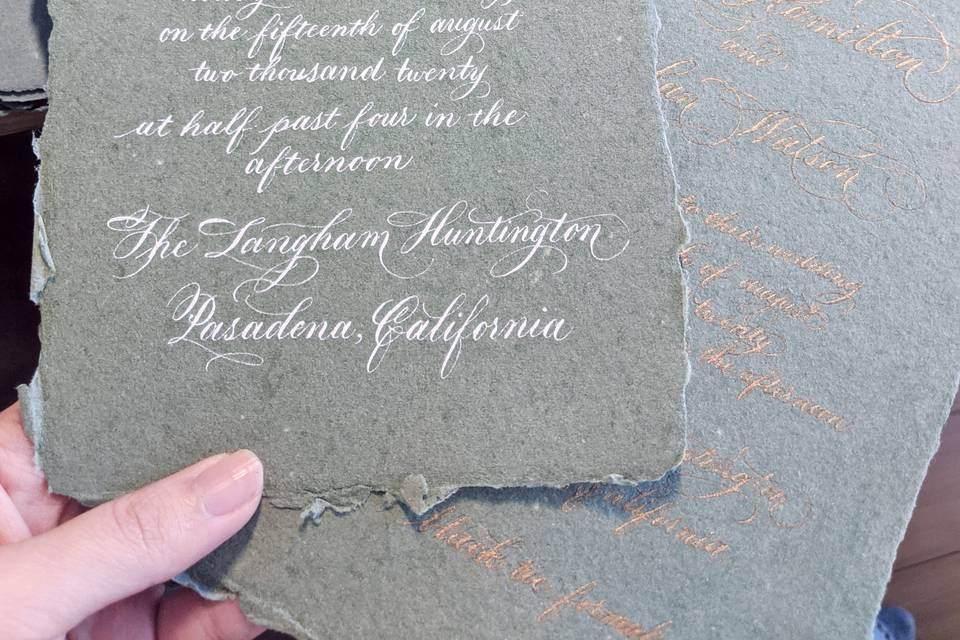 on the fifteenth of august
two thousand twenty
at half past four in the
afternoon
The Langham Huntington
Pasadena, California
Hamilton
and
Watson
to their wedding
of august
twenty
the afternoon
California
black tie formal